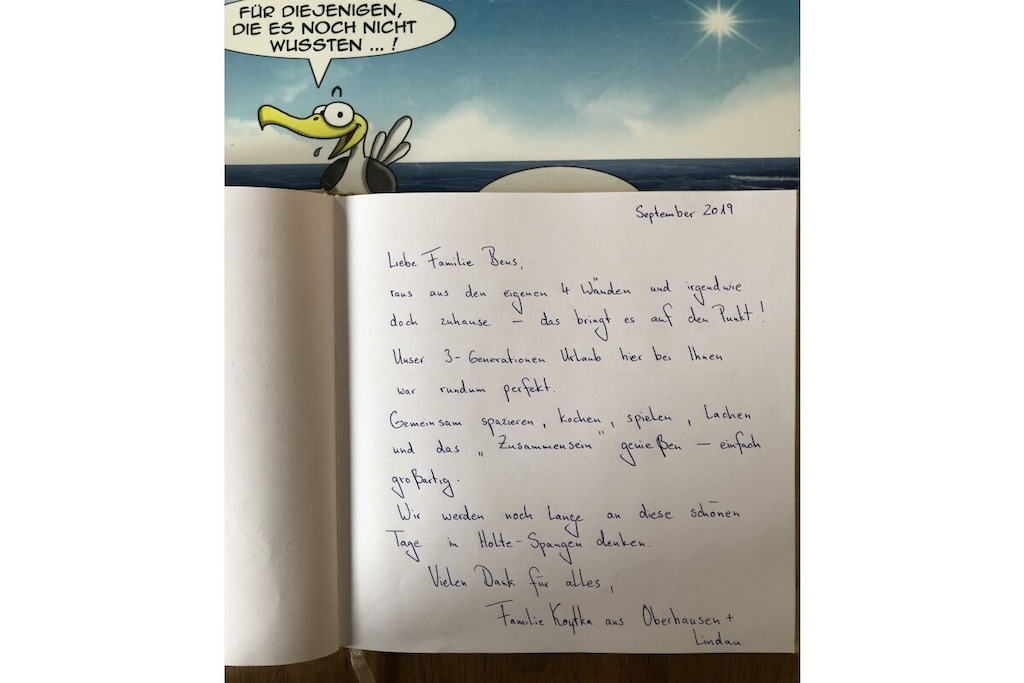 FÜR DIEJENIGEN,
DIE ES NOCH NICHT
WUSSTEN ... !
September 2019
Liebe Familie Bens,
raus aus den eigenen 4 Wänden und irgendwie
doch zuhause – das bringt es auf den Punkt!
Unser 3-Generationen Urlaub hier bei Ihnen
war rundum perfekt.
Gemeinsam spazieren, kochen, spielen, Lachen
und das „Zusammensein" genießen – einfach
großartig.
Wir werden noch Lange an diese schönen
Tage in Holte-Spangen denken.
Vielen Dank für alles,
Familie Koytka aus Oberhausen +
Lindau